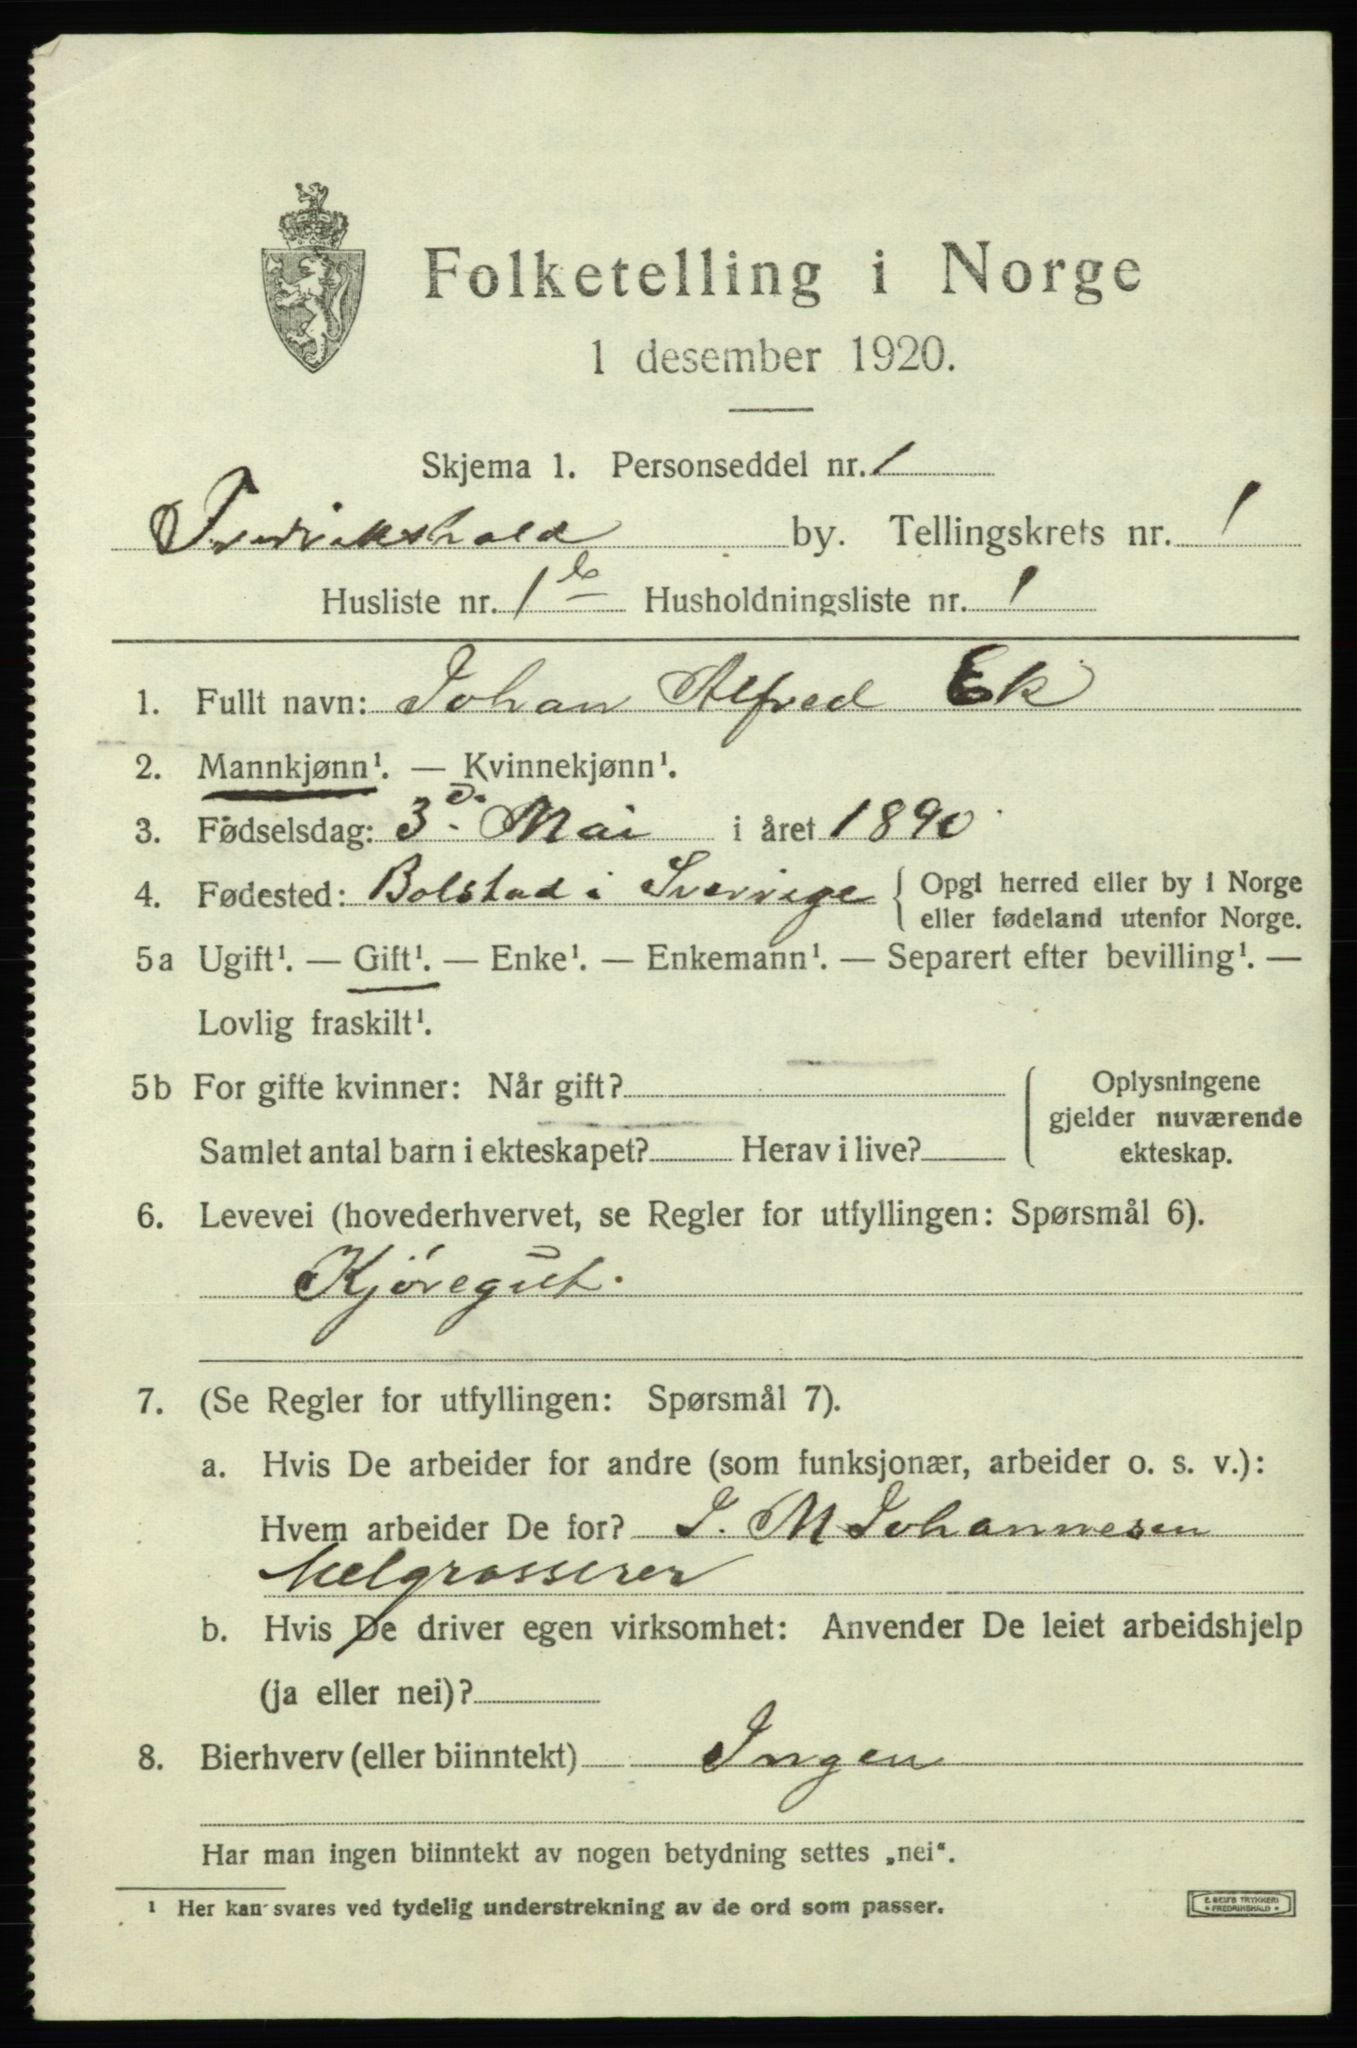 Folketelling i Norge
1 desember 1920.
Skjema 1. Personseddel nr. 1
Fredrikshald by. Tellingskrets nr. 1
Husliste nr. 1 b Husholdningsliste nr. 1
1. Fullt navn: Johan Alfred Ek
2. Mannkjønn¹. — Kvinnekjønn¹.
3. Fødselsdag: 3d. Mai i året 1890
4. Fødested: Bolstad i Sverrige { Opgi herred eller by i Norge
eller fødeland utenfor Norge.
5a Ugift¹. — Gift¹. — Enke¹. — Enkemann¹. — Separert efter bevilling¹. —
Lovlig fraskilt¹.
5b For gifte kvinner: Når gift?
Samlet antal barn i ekteskapet? Herav i live?
Oplysningene
gjelder nuværende
ekteskap.
6. Levevei (hovederhvervet, se Regler for utfyllingen: Spørsmål 6).
Kjøregut.
7. (Se Regler for utfyllingen: Spørsmål 7).
a. Hvis De arbeider for andre (som funksjonær, arbeider o. s. v.):
Hvem arbeider De for? J. M Johannesen
Melgrosserer
b. Hvis De driver egen virksomhet: Anvender De leiet arbeidshjelp
(ja eller nei)?
8. Bierhverv (eller biinntekt) Ingen
Har man ingen biinntekt av nogen betydning settes „nei“.
¹ Her kan svares ved tydelig understrekning av de ord som passer.
E. SEMS TRYKKERI
FREDRIKSHALD